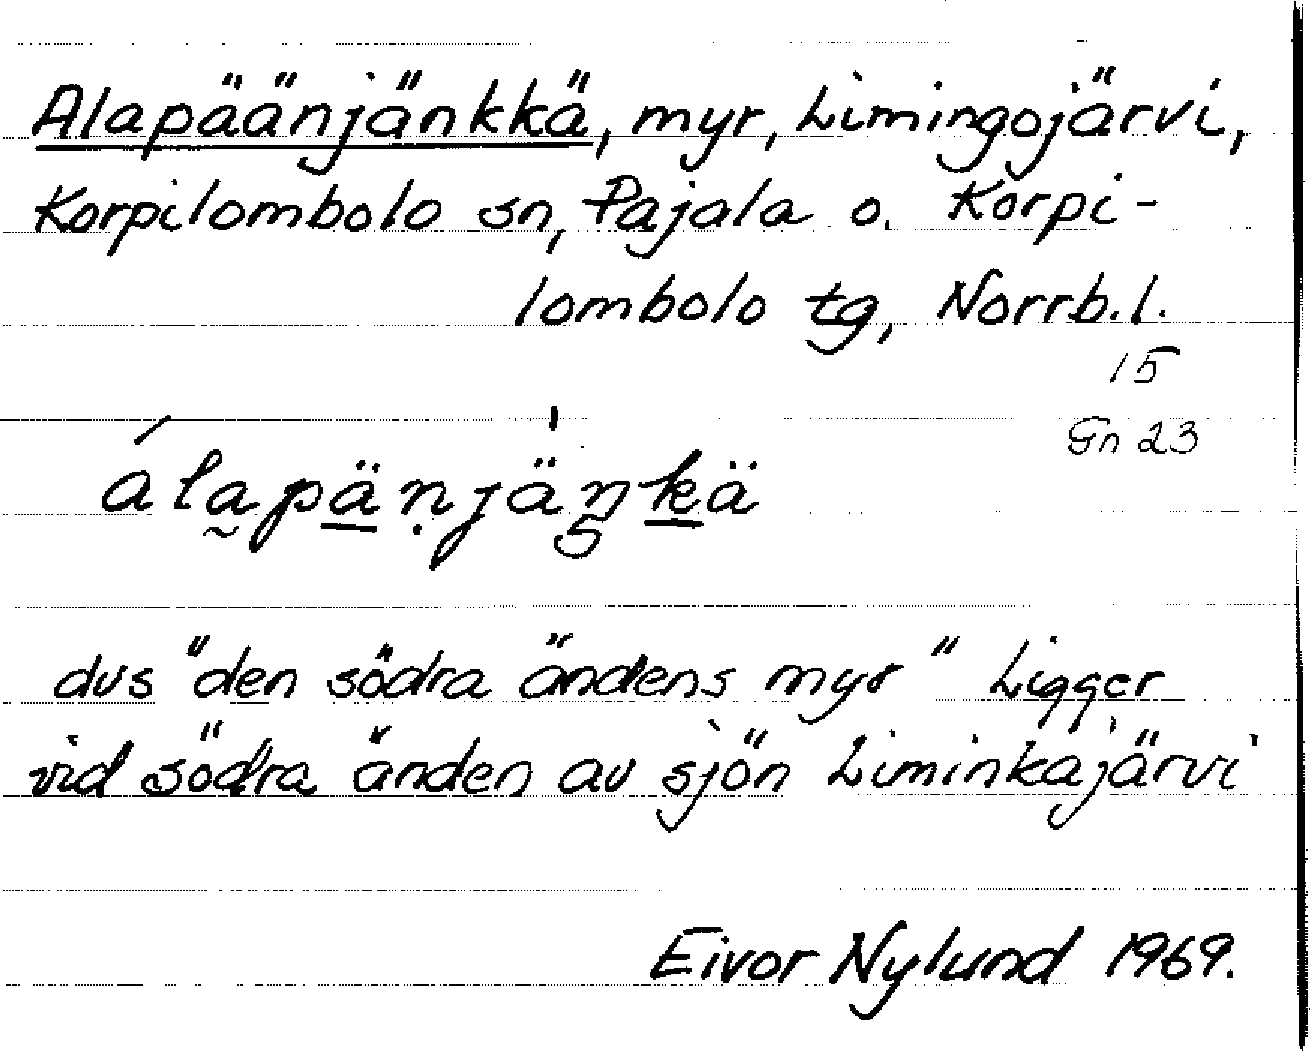 Alapäänjänkkä, myr, Limingojärvi,
Korpilombolo sn, Pajala o. Korpi-
lombolo tg, Norrb.l.
15
Gn 23
álapänjänkä
dvs "den södra ändens myr" Ligger
vid södra änden av sjön Liminkajärvi
Eivor Nylund 1969.